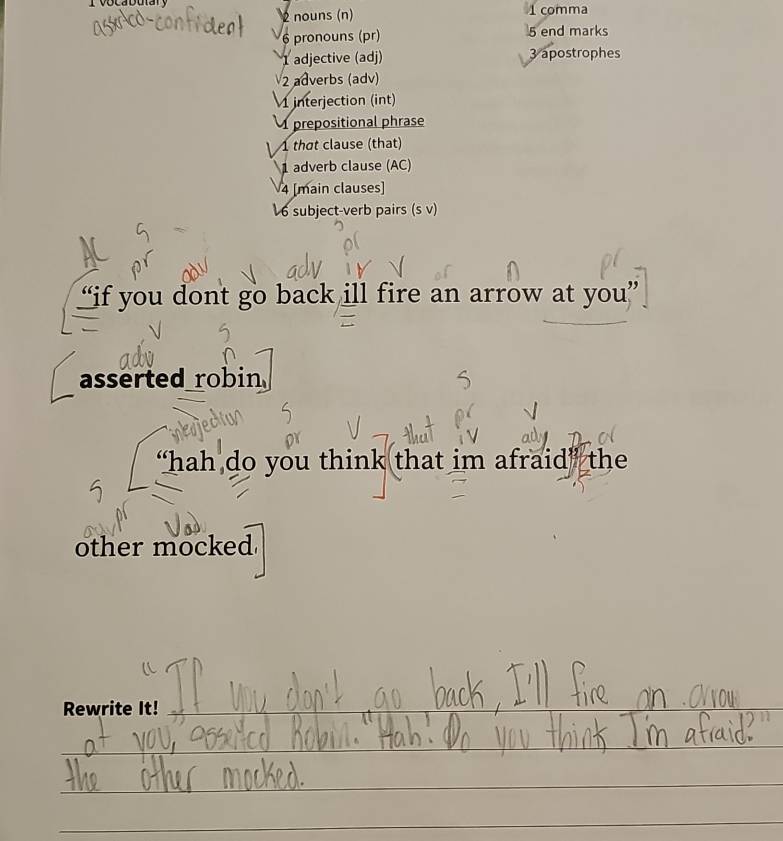 1 vocabulary
asserted-confident
2 nouns (n)
6 pronouns (pr)
1 adjective (adj)
2 adverbs (adv)
1 interjection (int)
1 prepositional phrase
1 that clause (that)
1 adverb clause (AC)
4 [main clauses]
6 subject-verb pairs (s v)
1 comma
5 end marks
3 apostrophes
AC s s
pr adv v adv pr v v n pr
“if you dont go back ill fire an arrow at you”
v s
adv n
asserted robin
s
interjection s v that pr v v adj
pr
“hah do you think that im afraid” the
s
pr v
other mocked
Rewrite It! "If you don't go back, I'll fire an arrow
at you," asserted Robin. "Hah! Do you think I'm afraid?"
the other mocked.